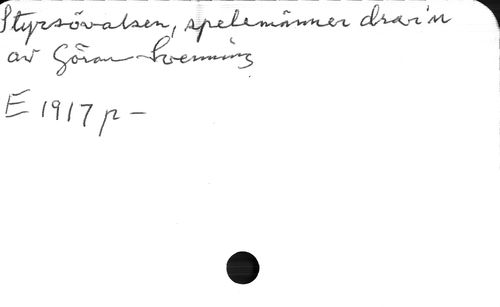 Styrsövalsen, spelemänner drar'n
av Göran Svenning
E 1917 p -